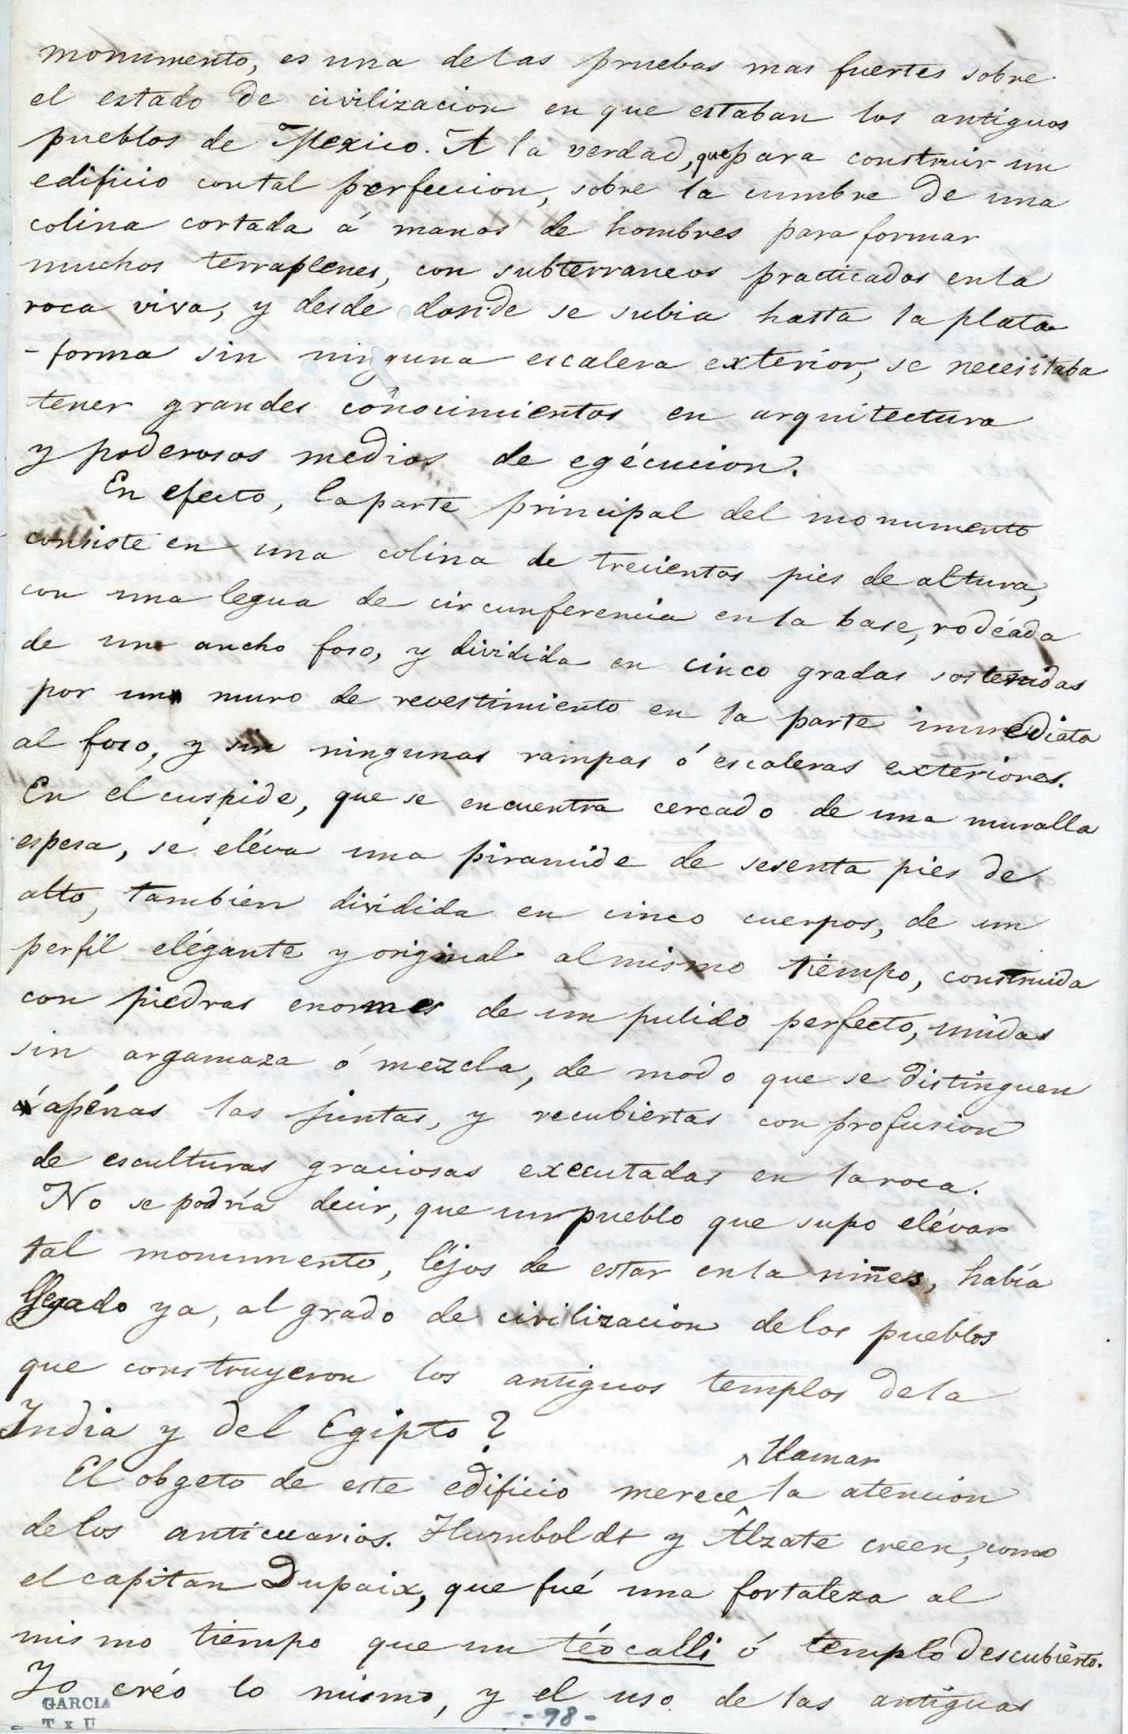 monumento, es una de las pruebas mas fuertes sobre
el estado de civilizacion en que estaban los antiguos
pueblos de Mexico. A la verdad, que para construir un
edificio con tal perfeccion, sobre la cumbre de una
colina cortada á manos de hombres para formar
muchos terraplenes, con subterraneos practicados en la
roca viva, y desde donde se subia hasta la plata
-forma sin ninguna escalera exterior, se necesitaba
tener grandes conocimientos en arquitectura
y poderosos medios de egécucion.
En efecto, la parte principal del monumento
consiste en una colina de trecientos pies de altura,
con una legua de circunferencia en la base, rodéada
de un ancho foso, y dividida en cinco gradas sostenidas
por un muro de revestimiento en la parte inmediata
al foso, y sin ningunas rampas ó escaleras exteriores.
En el cuspide, que se encuentra cercado de una muralla
espesa, sé eléva una piramide de sesenta pies de
alto, también dividida en cinco cuerpos, de un
perfil elégante y original al mismo tiempo, construida
con piedras enormes de un pulido perfecto, unidas
sin argamaza ó mezcla, de modo que se distinguen
apénas las juntas, y recubiertas con profusion
de esculturas graciosas execcutadas en la roca.
No se podría decir, que un pueblo que supo elévar
tal monumento, léjos de estar en la niñes, había
llegado ya, al grado de civilizacion de los pueblos
que construyeron los antiguos templos de la
India y del Egipto?
El obgeto de este edificio merece ^llamar la atencion
de los anticuarios. Humboldt y Alzate creen, como
el capitan Dupaix, que fué una fortaleza al
mismo tiempo que un téocalli ó templo descubierto.
Yo créo lo mismo, y el uso de las antiguas
GARCIA
T x U
-98-